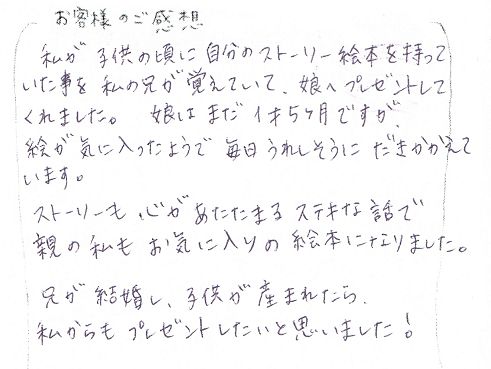 お客様のご感想
私が子供の頃に自分のストーリー絵本を持って
いた事を私の兄が覚えていて、娘へプレゼントして
くれました。 娘はまだ1才5ヶ月ですが、
絵が気に入ったようで毎日うれしそうにだきかかえて
います。
ストーリーも心があたたまるステキな話で
親の私もお気に入りの絵本になりました。
兄が結婚し、子供が産まれたら、
私からもプレゼントしたいと思いました!